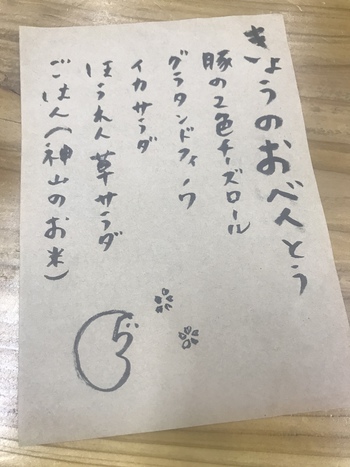 きょうのおべんとう
豚の2色チーズロール
グラタンドフィノワ
イカサラダ
ほうれん草サラダ
ごはん(神山のお米)